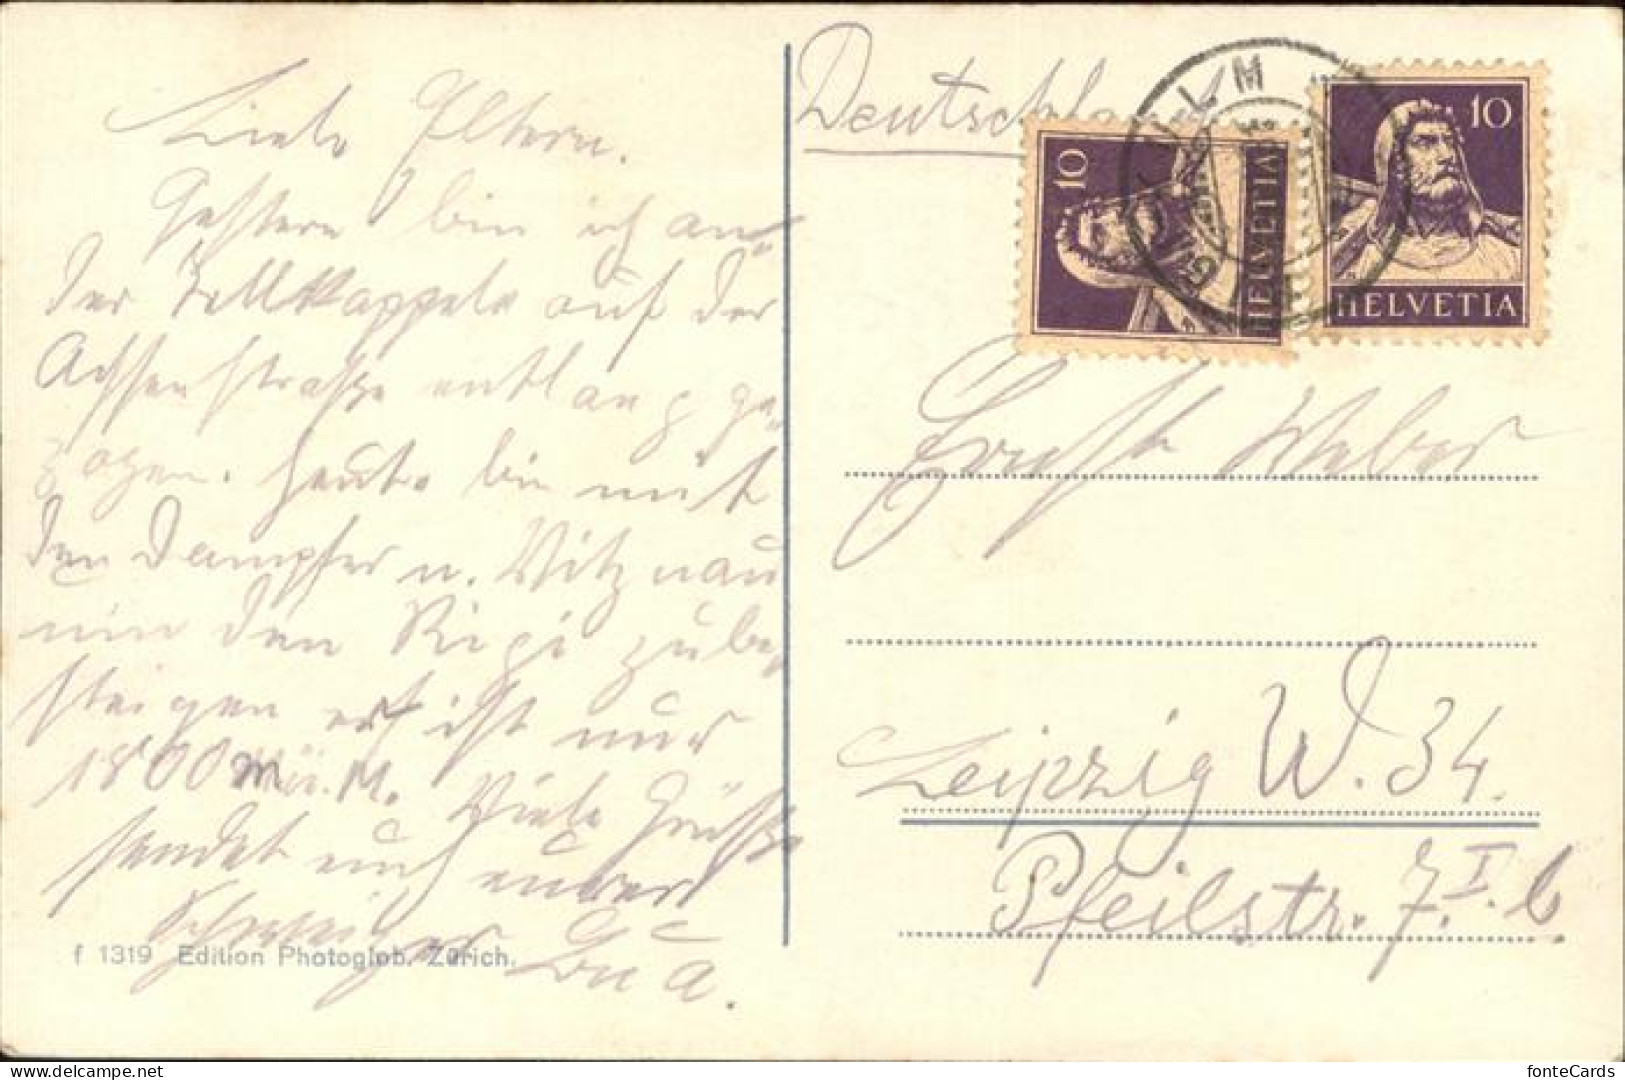 Liebe Eltern.
Gestern bin ich an
der Tellskappele auf der
Achsenstraße entlang ge-
zogen. Heute bin mit
den Dampfer n. Vitznau
um den Rigi zu be-
steigen er ist nur
1800 M. Viele Grüße
sendet euch euer
Schweizer
f 1319 Edition Photoglob. Zürich.
Deutschland
10
HELVETIA
10
HELVETIA
Weber
Leipzig W. 34.
Pfeilstr. 7. I. b
fonteCards